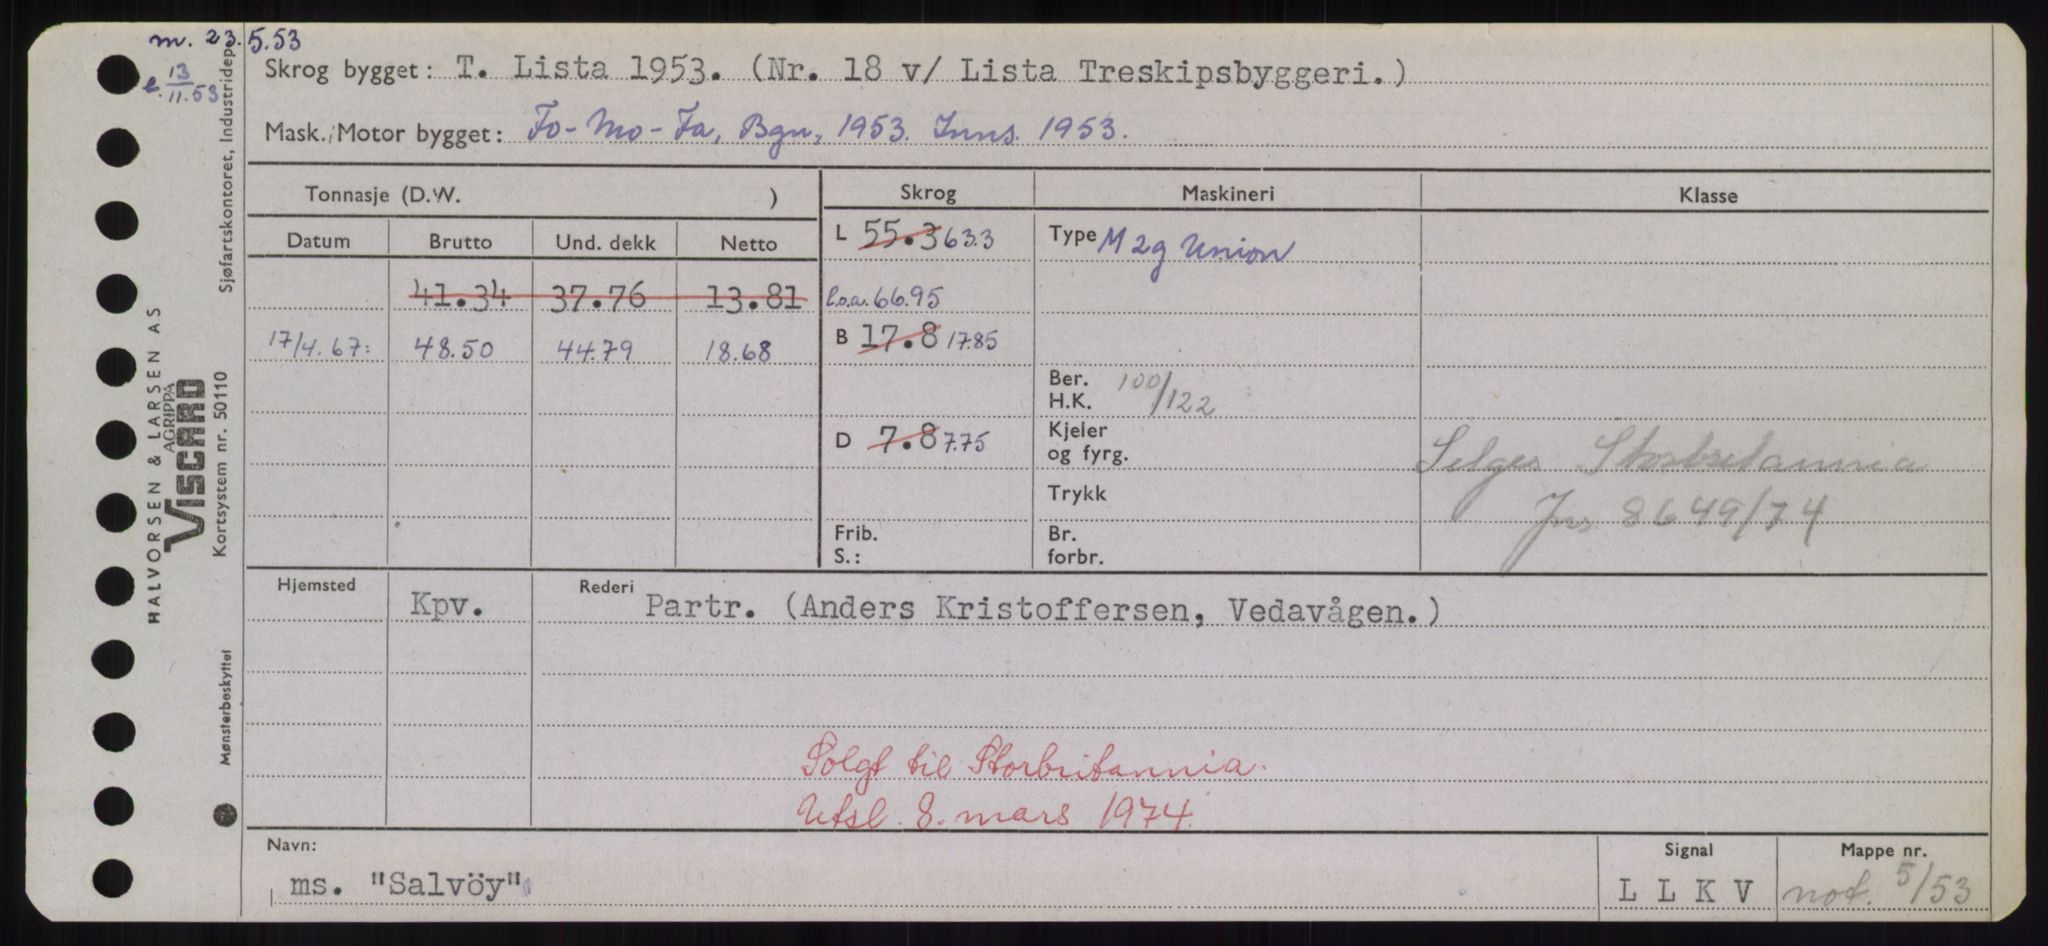 m. 23.5.53
e. 13/11.53
Skrog bygget: T. Lista 1953. (Nr. 18 v/ Lista Treskipsbyggeri.)
Mask./Motor bygget: Fo-Mo-Fa, Bgn, 1953. Inns. 1953.
Tonnasje (D.W. )
Skrog
Maskineri
Klasse
Datum Brutto Und. dekk Netto
L 55.3 63.3
Type M 2g Union
41.34 37.76 13.81
l.o.a. 66.95
17/4.67: 48.50 44.79 18.68
B 17.8 17.85
Ber. H.K. 100/122
D 7.8 7.75
Kjeler og fyrg.
Selges Storbritannia
Trykk
Jns 8649/74
Frib. S.:
Br. forbr.
Hjemsted Kpv.
Rederi Partr. (Anders Kristoffersen, Vedavågen.)
Solgt til Storbritannia.
Utsl. 8. mars 1974.
Navn:
ms. "Salvöy"
Signal
L L K V
Mappe nr.
not. 5/53
HALVORSEN & LARSEN AS
AGRIPPA
VISCARD
Kortsystem nr. 50110
Sjøfartskontoret, Industridep
Mønsterbeskyttet